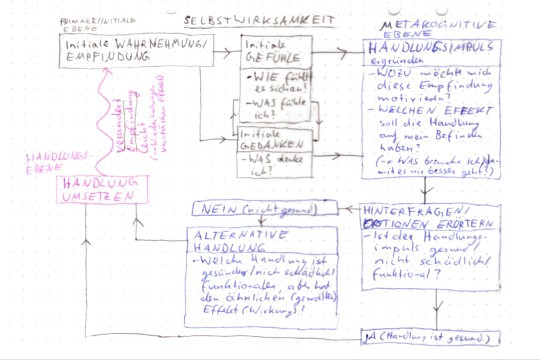 PRIMÄRE/INITIALE
EBENE
Initiale WAHRNEHMUNG/
EMPFINDUNG
SELBSTWIRKSAMKEIT
Initiale
GEFÜHLE
-WIE fühlt
es sich an?
-WAS fühle
ich?
Initiale
GEDANKEN
-WAS denke
ich?
METAKOGNITIVE
EBENE
HANDLUNGSIMPULS
ergründen
-WOZU möchte mich
diese Empfindung
motivieren?
-WELCHEN EFFEKT
soll die Handlung
auf mein Befinden
haben?
(→ WAS brauche ich, damit
es mir besser geht?)
verändert
Empfindung
leicht
HANDLUNGS-
EBENE
HANDLUNG
UMSETZEN
NEIN (nicht gesund)
ALTERNATIVE
HANDLUNG
-Welche Handlung ist
gesünder/nicht schädlich/
funktionaler, aber hat
den ähnlichen (gewollten)
Effekt (Wirkung)?
HINTERFRAGEN/
OPTIONEN ERÖRTERN
-Ist der Handlungs-
impuls gesund/
nicht schädlich/
funktional?
JA (Handlung ist gesund)